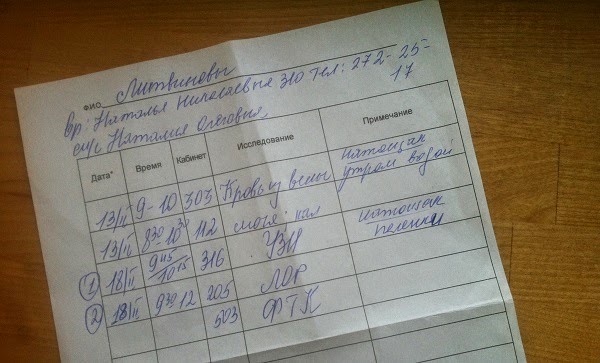 ФИО Литвиновы
Вр: Наталья Николаевна 310 тел: 272-25-
17
м/с Наталия Олеговна
Дата* Время Кабинет Исследование Примечание
13/II 9-10 303 Кровь из вены натощак утром водой
13/II 8³⁰-10³⁰ 112 моча; кал
① 18/II 9⁴⁵/10¹⁵ 316 УЗИ натощак пеленки
② 18/II 9³⁰-12 205 ЛОР
503 ФТК